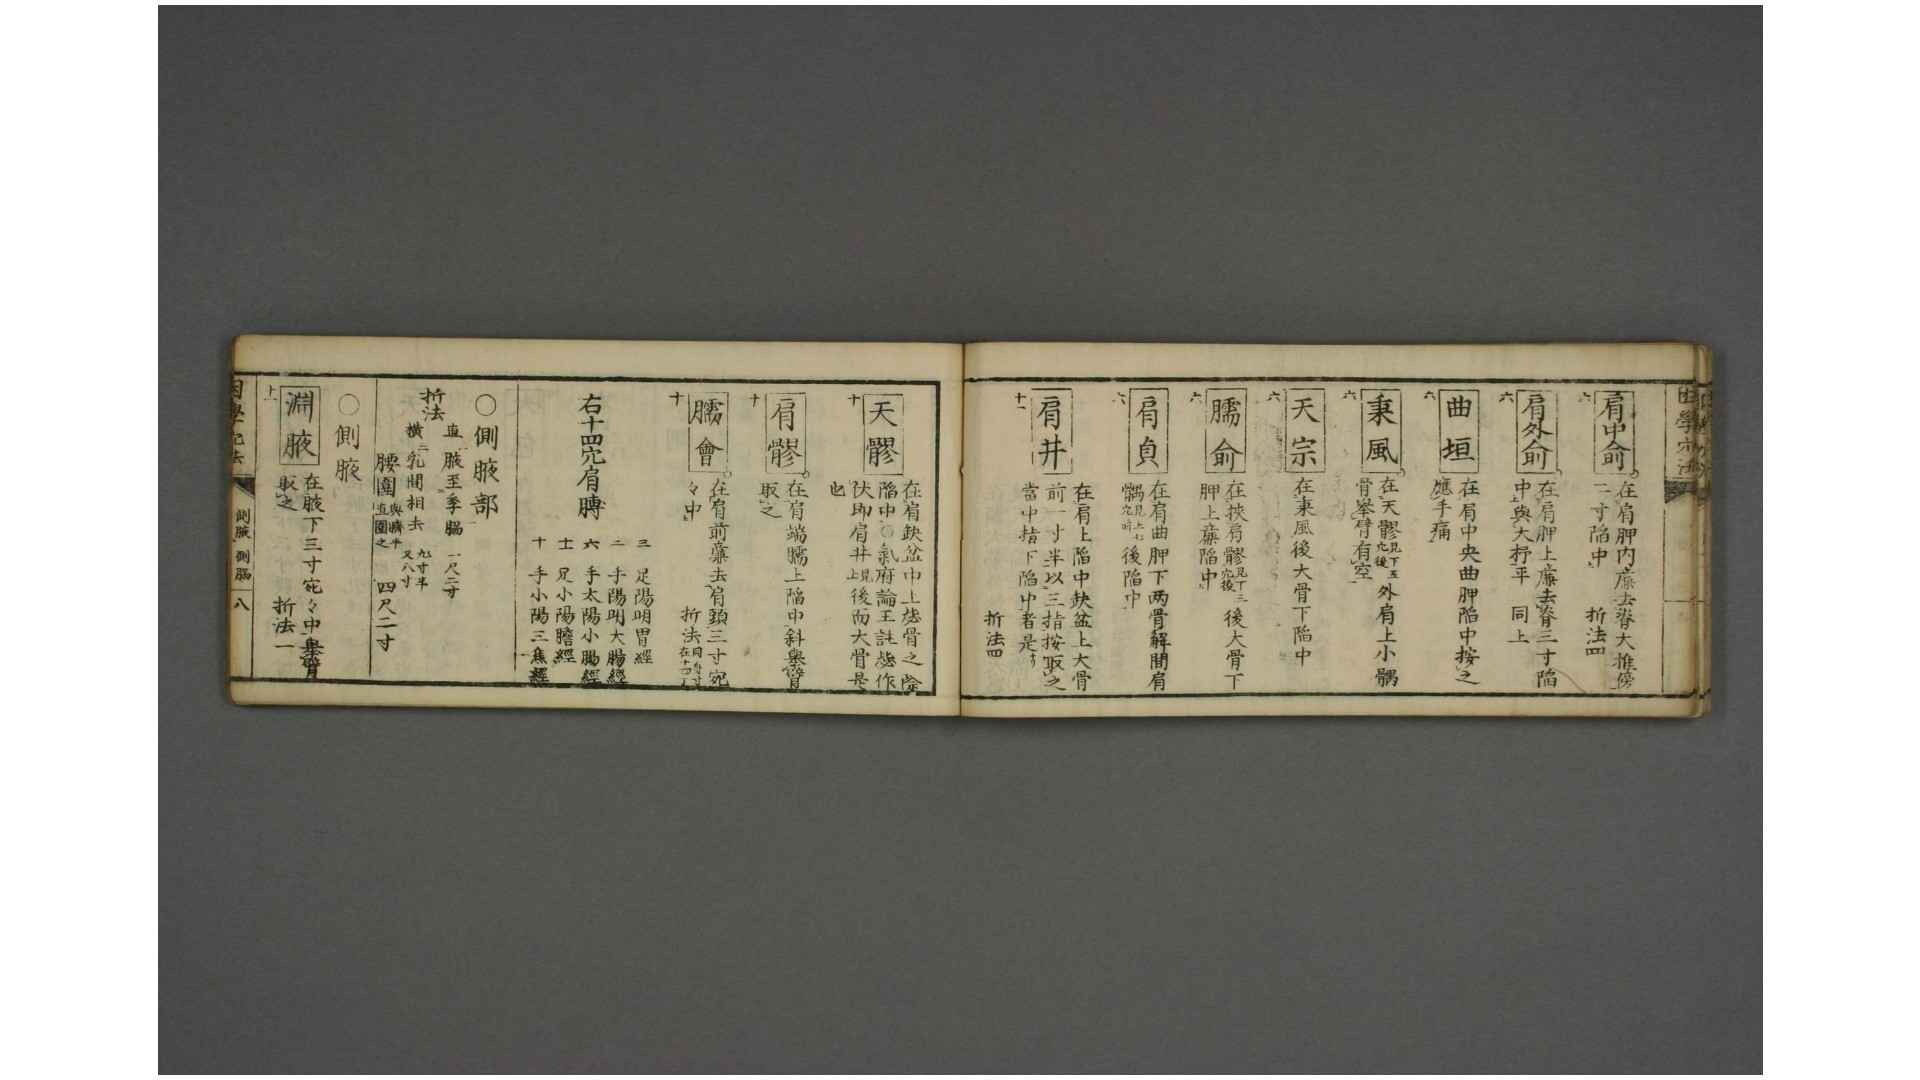 肩中俞
六
在肩胛内廉去脊大椎傍
二寸陷中 折法四
肩外俞
六
在肩胛上廉去脊三寸陷
中與大杼平 同上
曲垣
六
在肩中央曲胛陷中按之
應手痛
秉風
六
在天髎見下五穴後外肩上小髃
骨舉臂有空
天宗
六
在秉風後大骨下陷中
臑俞
六
在挾肩髎見下三穴後後大骨下
胛上廉陷中
肩貞
六
在肩曲胛下两骨解間肩
髃見上七穴時後陷中
肩井
十一
在肩上陷中缺盆上大骨
前一寸半以三指按取之
當中指下陷中者是
折法四
天髎
十
在肩缺盆中上毖骨之際
陷中○氣府論王註毖作
伏即肩井見上後而大骨是
也
肩髎
十
在肩端臑上陷中斜舉臂
取之
臑會
十
在肩前廉去肩頭三寸宛
々中 折法
右十四穴肩膊
三 足陽明胃經
二 手陽明大腸經
六 手太陽小腸經
十一 足小陽膽經
十 手小陽三焦經
○側腋部
折法
直 腋至季脇 一尺二寸
横 二乳間相去 九寸半又八寸
腰圍 與臍平直圍之 四尺二寸
○側腋
淵腋
十一
在腋下三寸宛々中舉臂
取之 折法一
側腋 側脇 八